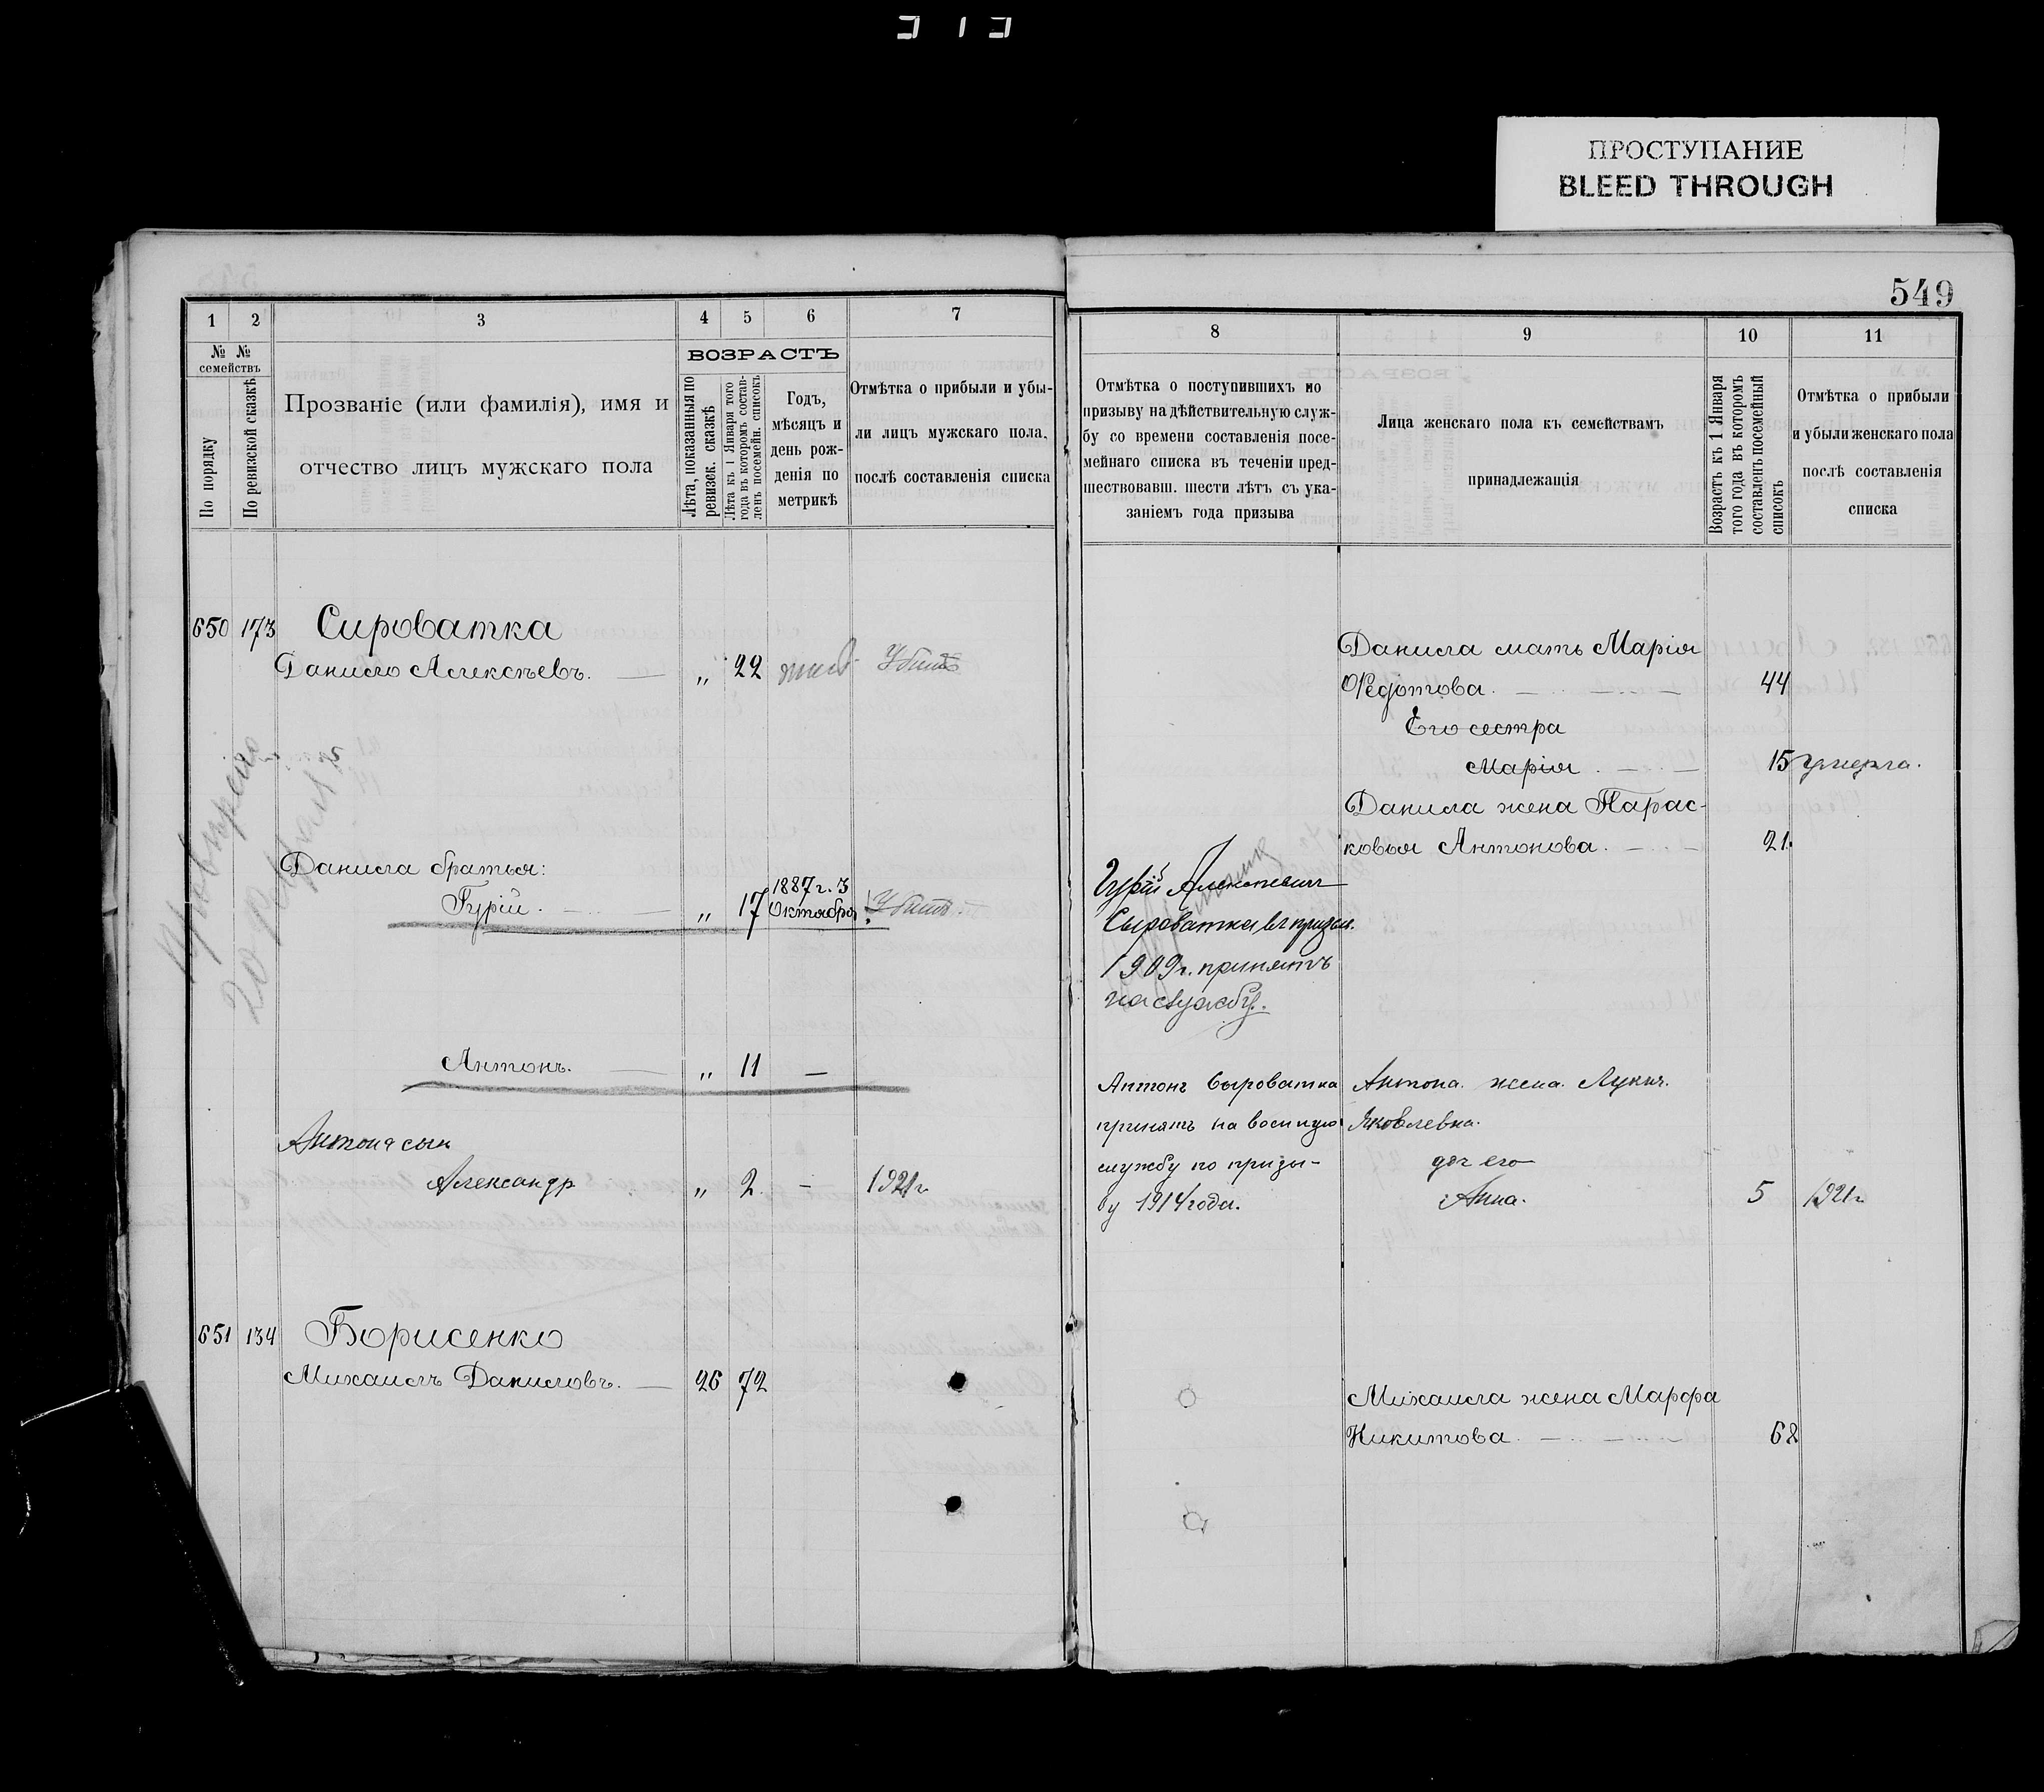 ПРОСТУПАНИЕ
BLEED THROUGH
549
1 2 3 4 5 6 7
№ № семействъ
По порядку
По ревизской сказкѣ
Прозваніе (или фамилія), имя и
отчество лицъ мужскаго пола
ВОЗРАСТЪ
Лѣта, показанныя по
ревизск. сказкѣ
Лѣта къ 1 Января того
года въ которомъ состав-
ленъ посемейн. списокъ
Годъ,
мѣсяцъ и
день рож-
денія по
метрикѣ
Отмѣтка о прибыли и убы-
ли лицъ мужскаго пола,
послѣ составленія списка
650 173 Сироватка
Данило Алексѣевъ. „ 22 Убитъ
Данила братья:
Гурій. „ 17 1887 г. 3 Октября Убитъ.
Антонъ. „ 11 —
Антона сын
Александр „ 2. - 1921 г
651 134 Борисенко
Михаилъ Даниловъ. 26 72
8 9 10 11
Отмѣтка о поступившихъ по
призыву на дѣйствительную служ-
бу со времени составленія посе-
мейнаго списка въ теченіи пред-
шествовавш. шести лѣтъ съ ука-
заніемъ года призыва
Лица женскаго пола къ семействамъ
принадлежащія
Возрастъ къ 1 Января
того года въ которомъ
составленъ посемейный
списокъ
Отмѣтка о прибыли
и убыли женскаго пола
послѣ составленія
списка
Данила мать Марія
Ѳедотова. 44
Его сестра
Марія 15 умерла.
Данила жена Парас-
ковья Антонова. 21.
Гурій Алексѣевич
Сыроватка въ призыв.
1909 г. принятъ
на службу.
Антонъ Сыроватка
принятъ на военную
службу по призы-
ву 1914 года.
Антона. жена. Лукия.
Яковлевна.
доч его
Анна. 5 1921 г
Михаила жена Марфа
Никитова. 62